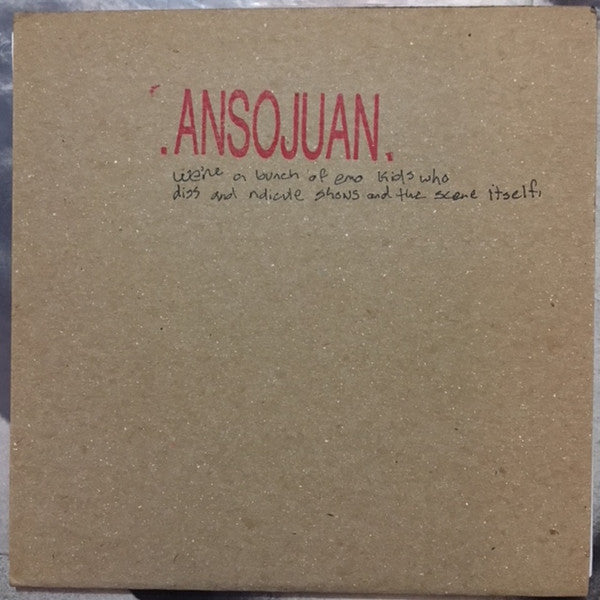 .ANSOJUAN.
we're a bunch of emo kids who
diss and ridicule shows and the scene itself.